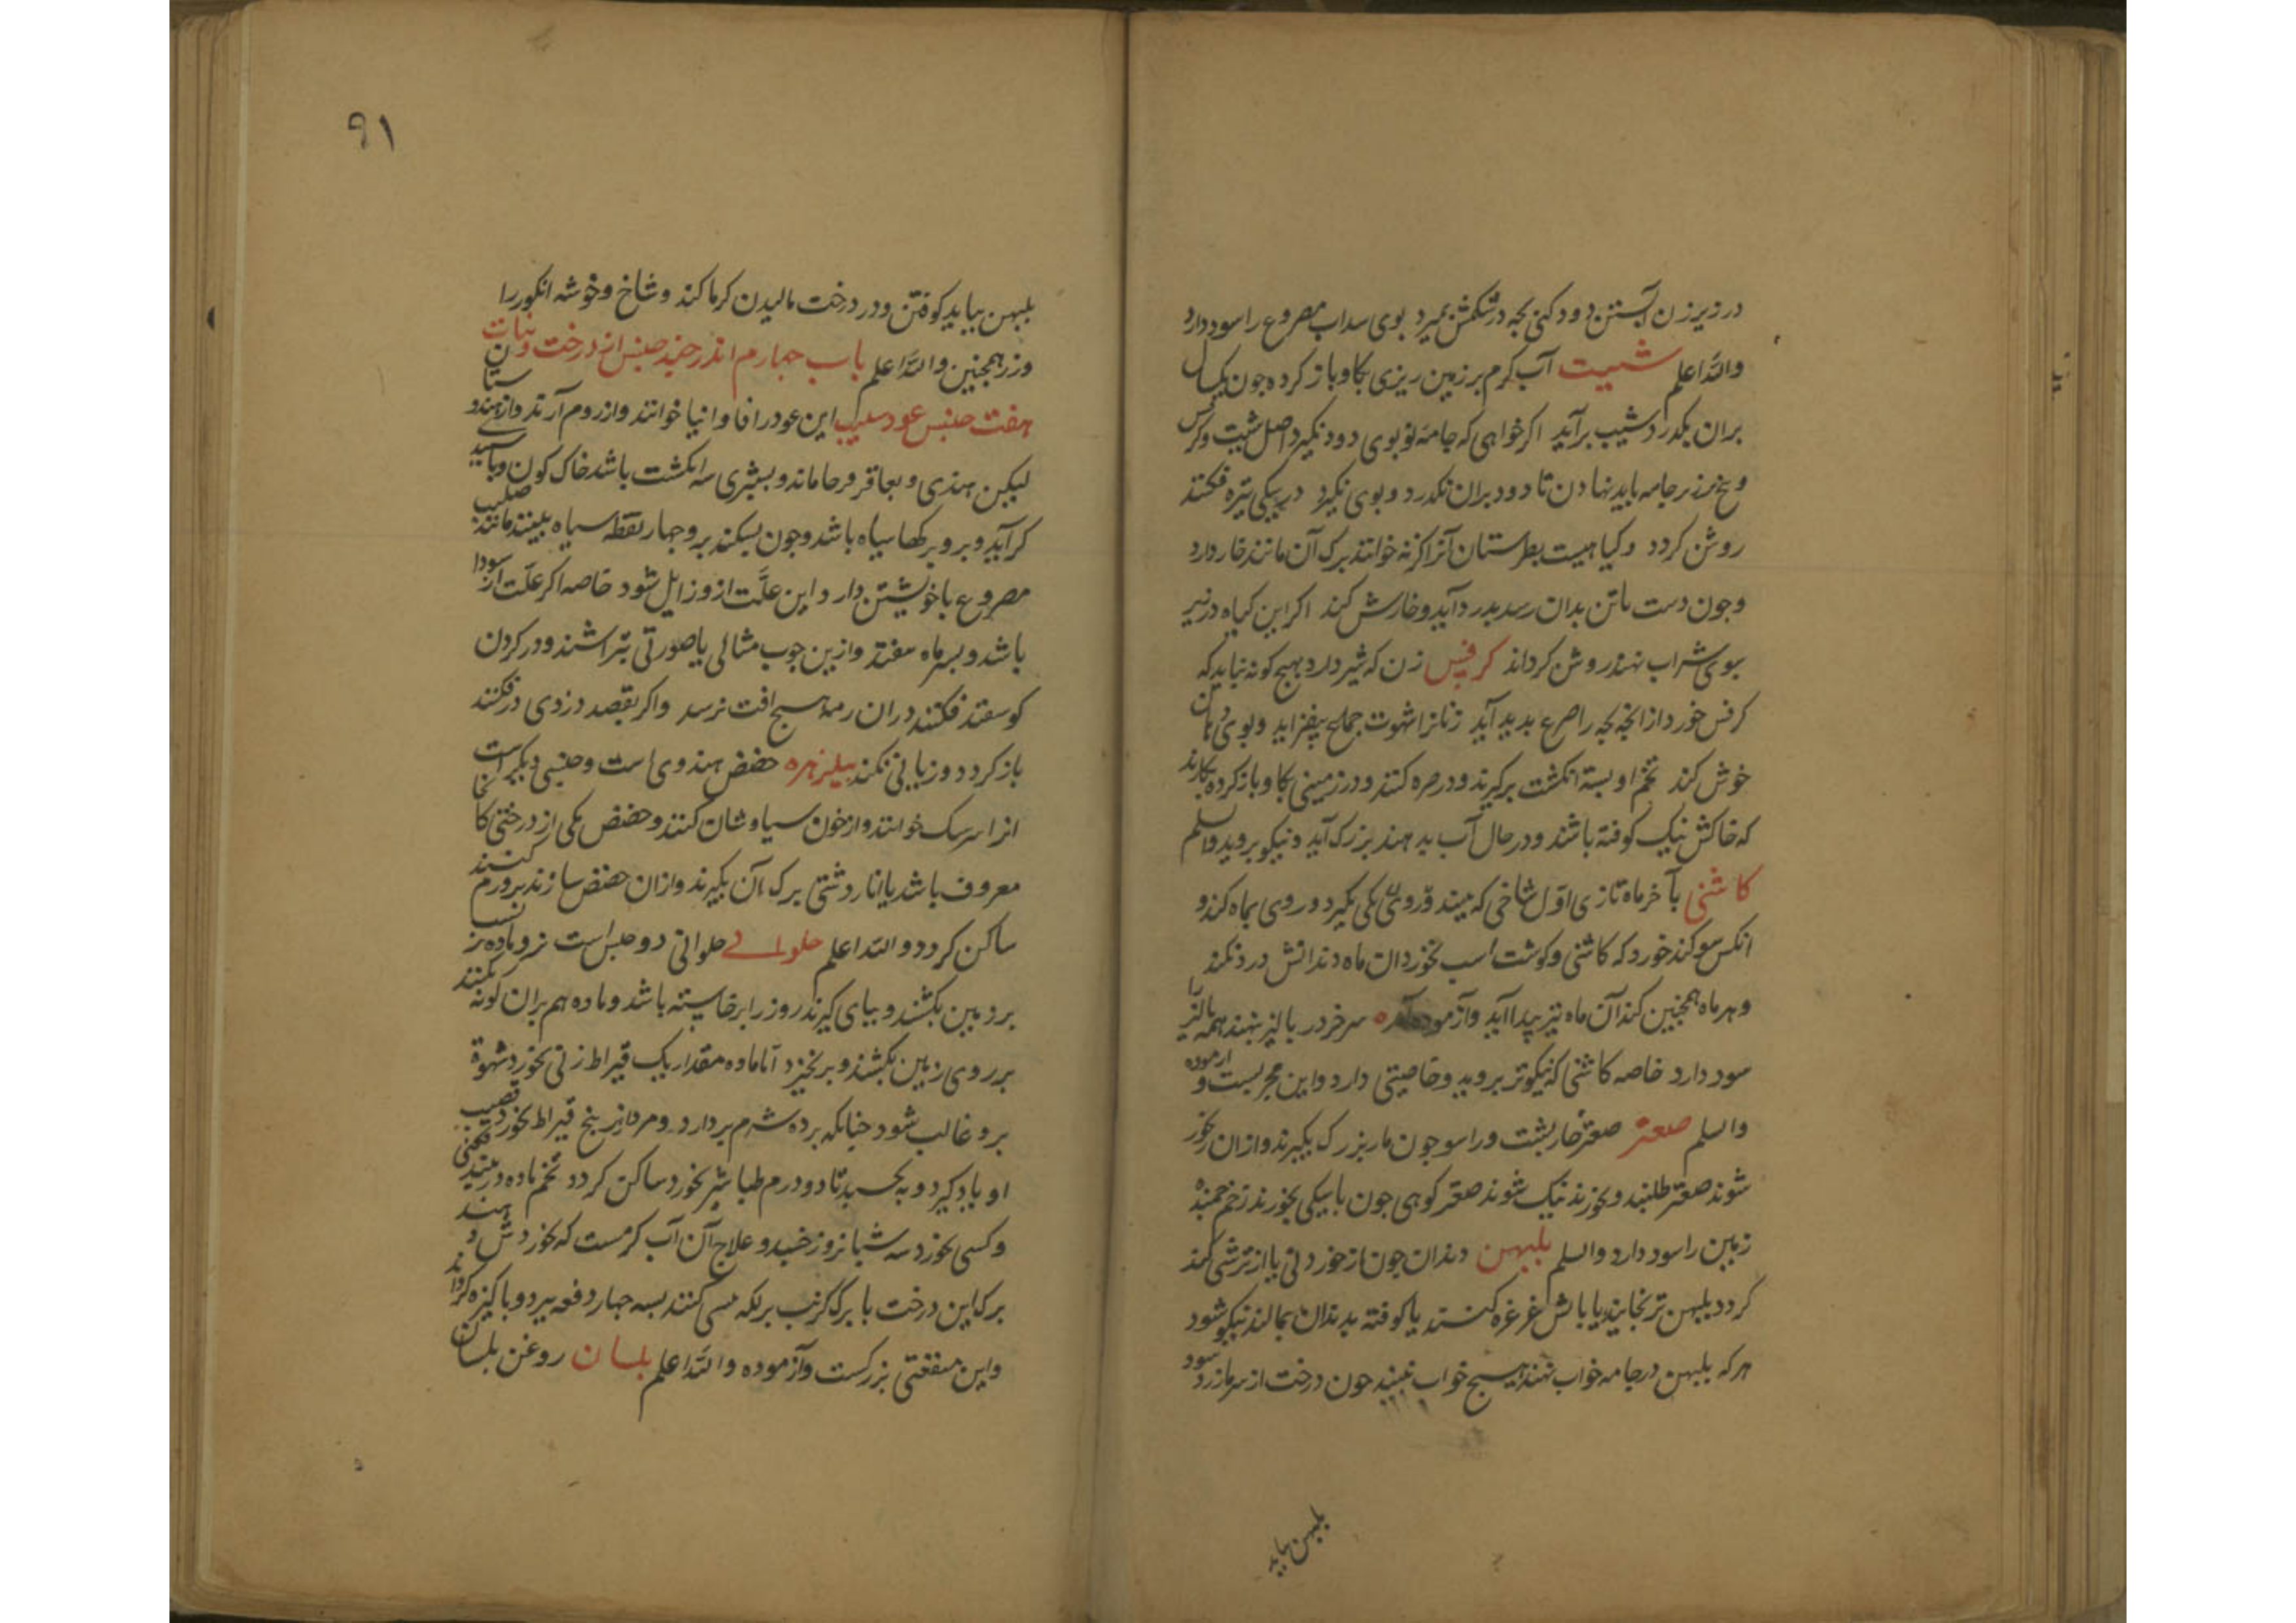 در زیر زن آبستن دود کنی بچه در شکمش بمیرد بوی سداب مصروع را سود دارد
والله اعلم شبت آب کرم بر زمین ریزی بکاو باز کرده جون یکسال
بران بکذرد شبت برآید اکر خواهی که جامه تو بوی دود نکیرد اصل شبت و کرفس
و بیخ بر زبر جامه باید نهادن تا دود بران نکذرد و بوی نکیرد در پیکی تیره فکنند
روشن کردد و کیاهیست بطبرستان آنرا کزنه خوانند برک آن مانند خار دارد
وجون دست یا تن بدان رسد بدرد آید و خارش کند اکر این کیاه در زیر
بوی شراب نهند روشن کرداند کرفس زن که شیر دارد بهیچ کونه نباید که
کرفس خورد از آنجه بچه را صرع بدید آید زنانرا شهوت جماع بیفزاید و بوی دهان
خوش کند تخم او بسته انکشت برکیرند و در صره کنند و در زمینی بکاو باز کرده بکارند
که خاکش نیک کوفته باشند و در حال آب بدهند بزرک آید و نیکو بروید والسلم
کاشنی بآخر ماه تازی اول شاخی که بیند و روی یکی بکیرد و روی بماه کند و
انکس سوکند خورد که کاشنی و کوشت اسب نخورد ان ماه دندانش درد نکند
و هر ماه همجنین کند آن ماه نیز پیدا آید و آزموده سر خر در پالیز بنهند همه پالیز را
سود دارد خاصه کاشنی که نیکوتر بروید و خاصیتی دارد و این مجربست و آزموده
والسلم صعتر صعتر خاربشت و راسو جون مار بزرک بکیرند و ازان رنجور
شوند صعتر طلبند و بخورند نیک شوند صعتر کوهی جون با پیکی بخورند زخم جمنده
زمین را سود دارد والسلم بلبهن دندان جون از خوردنی یا از ترشی کند
کردد بلبهن تر بخایند یا بآبش غرغره کنند یا کوفته بدندان بمالند نیکو شود
هرکه بلبهن در جامه خواب نهند هیچ خواب نبیند جون درخت از سرما زرد شود
بلبهن بباید
۹۱
بلبهن بباید کوفتن و در درخت مالیدن کرما کند و شاخ و خوشه انکور را
و زر همجنین والله اعلم باب جهارم اندر جند جنس از درخت و نبات
هفت جنس عود صلیب این عود را فاوانیا خوانند و از روم آرند و از هندوستان
لیکن هندی و بعاقرقرحا ماند و بیشتری سه انکشت باشد خاک کون و بآسیدی
کر آید و برو برکها سیاه باشد و جون بشکند برو جهار نقطه سیاه بینند مانند صلیب
مصروع با خویشتن دارد این علت ازو زایل شود خاصه اکر علت از سودا
باشد و بسر ماه بیفتد و ازین جوب مثالی یا صورتی بتراشند و در کردن
کوسفند فکنند دران رمه هیچ آفت نرسد و اکر بقصد دزدی در فکنند
باز کردد و زیانی نکند بیلزهره حضض هندوی است و جنسی دیکر است
انرا خوانند و از خون سیاوشان کنند و حضض مکی از درختی کنند
معروف باشد یا انار دشتی برک آن بکیرند و ازان حضض سازند بر ورم کنند
ساکن کردد والله اعلم حلوانی حلوانی دو جنس است نر و ماده نر
بر زمین بکشند و بپای کیرند روز را برخاسته باشد و ماده هم بران کونه بکنند
بر روی زمین بکشند و برنخیزد اما ماده مقدار یک قیراط زنی بخورد شهوة
برو غالب شود جنانکه برده شرم بردارد و مرد از نر پنج قیراط بخورد قضیب
او باد کیرد و بخسبد تا دو درم طباشیر بخورد ساکن کردد تخم ماده در
و کسی بخورد سه شبانروز خسبد و علاج آن آب کرمست که بخوردش دهند
برک این درخت با برک کرنب بر لکه مسی کنند بسه جهار دفعه ببرد و باکیزه کرداند
و این منفعتی بزرکست و آزموده والله اعلم بلسان روغن بلسان